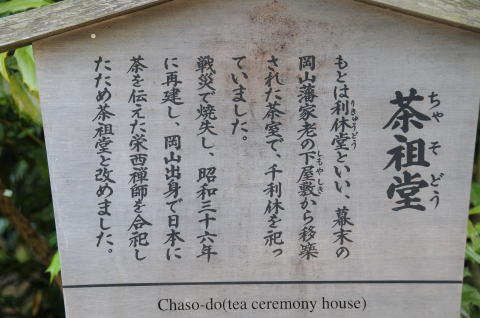 茶祖堂
ちゃそどう
もとは利休堂といい、幕末の
りきゅうどう
岡山藩家老の下屋敷から移築
しもやしき
された茶室で、千利休を祀っ
ていました。
戦災で焼失し、昭和三十六年
に再建し、岡山出身で日本に
茶を伝えた栄西禅師を合祀し
たため茶祖堂と改めました。
Chaso-do(tea ceremony house)